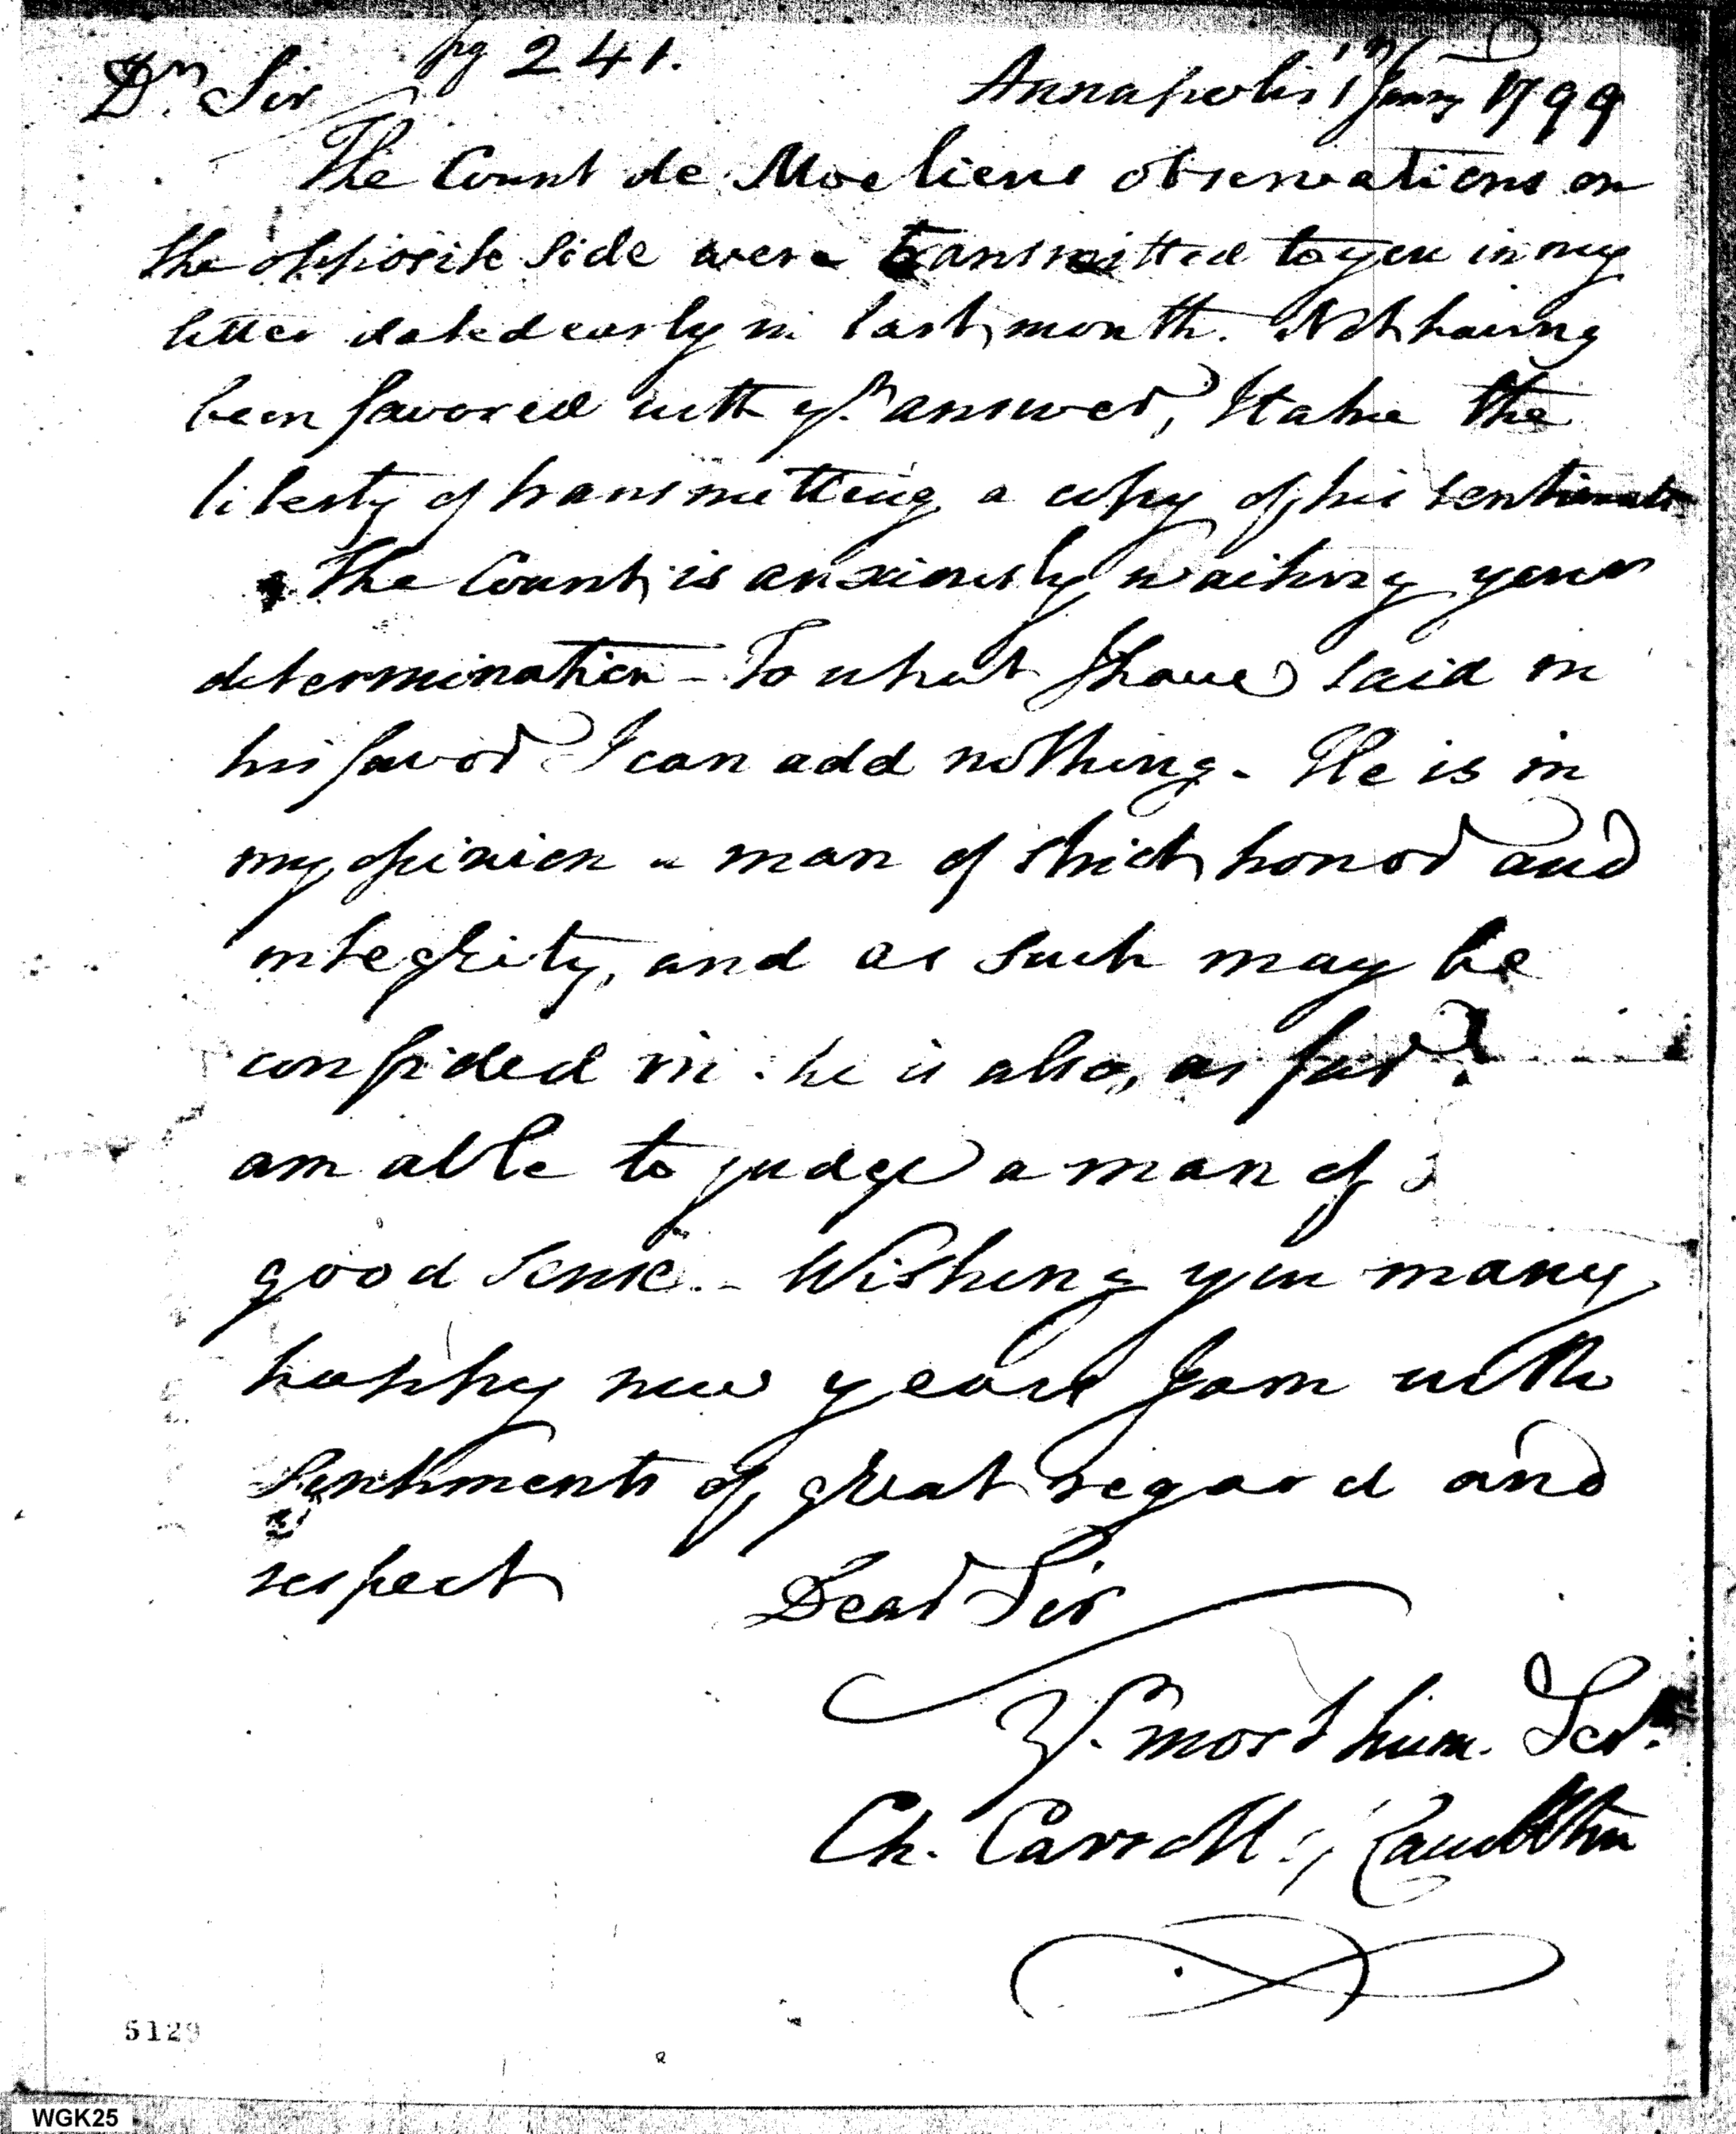 pg 241.
Dr. Sir Annapolis 1st Janry 1799
The Count de Moeliens observations on
the opposite side were transmitted to you in my
letter dated early in last month. Not having
been favored with yr. answer, I take the
liberty of transmitting a copy of his sentiments
The Count is anxiously waiting your
determination – To what I have said in
his favor I can add nothing. He is in
my opinion a man of strict honor and
integrity, and as such may be
confided in: he is also, as far
am able to judge a man of
good sense. – Wishing you many
happy new years I am with
sentiments of great regard and
respect Dear Sir
Yr. most hum. Ser.
Ch. Carroll of Carrollton
5129
WGK25